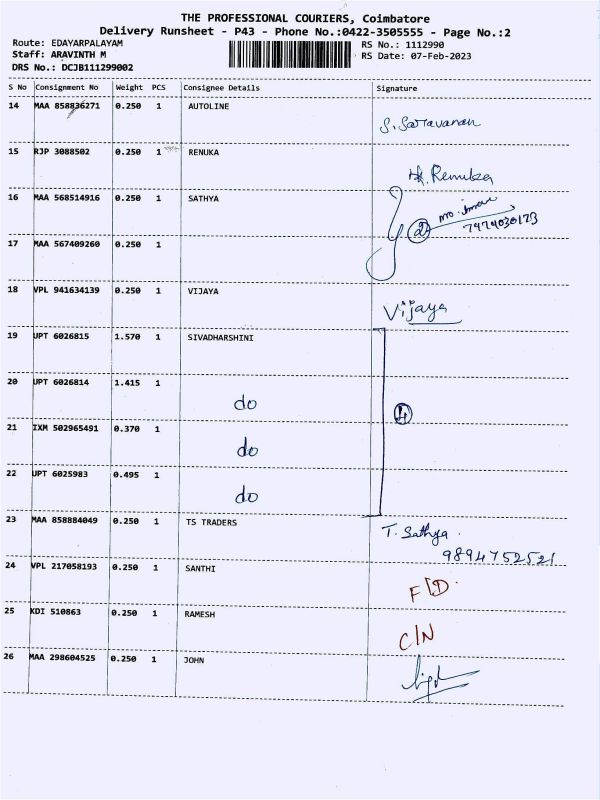 THE PROFESSIONAL COURIERS, Coimbatore
Delivery Runsheet - P43 - Phone No.:0422-3505555 - Page No.:2
Route: EDAYARPALAYAM
Staff: ARAVINTH M
DRS No.: DCJB111299002
RS No.: 1112990
RS Date: 07-Feb-2023
S No Consignment No Weight PCS Consignee Details Signature
14 MAA 858836271 0.250 1 AUTOLINE S. Saravanan
15 RJP 3088502 0.250 1 RENUKA Renuka
16 MAA 568514916 0.250 1 SATHYA 2
17 MAA 567409260 0.250 1
18 VPL 941634139 0.250 1 VIJAYA Vijaya
19 UPT 6026815 1.570 1 SIVADHARSHINI
20 UPT 6026814 1.415 1 do 4
21 IXM 502965491 0.370 1 do
22 UPT 6025983 0.495 1 do
23 MAA 858884049 0.250 1 TS TRADERS T. Sathya
9894752521
24 VPL 217058193 0.250 1 SANTHI F/D.
25 KDI 510863 0.250 1 RAMESH C/N
26 MAA 298604525 0.250 1 JOHN